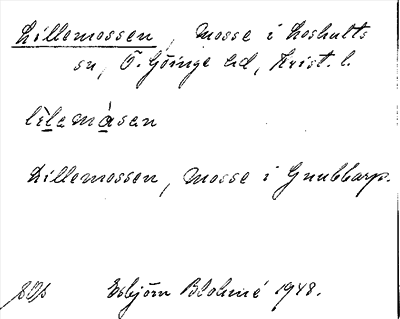 Lillemossen, Mosse i Loshults
sn, Ö. Göinge hd, Krist. l.
lìlemåsen
Lillemossen, Mosse i Gnubbarp.
Esbjörn Blohmé 1948.